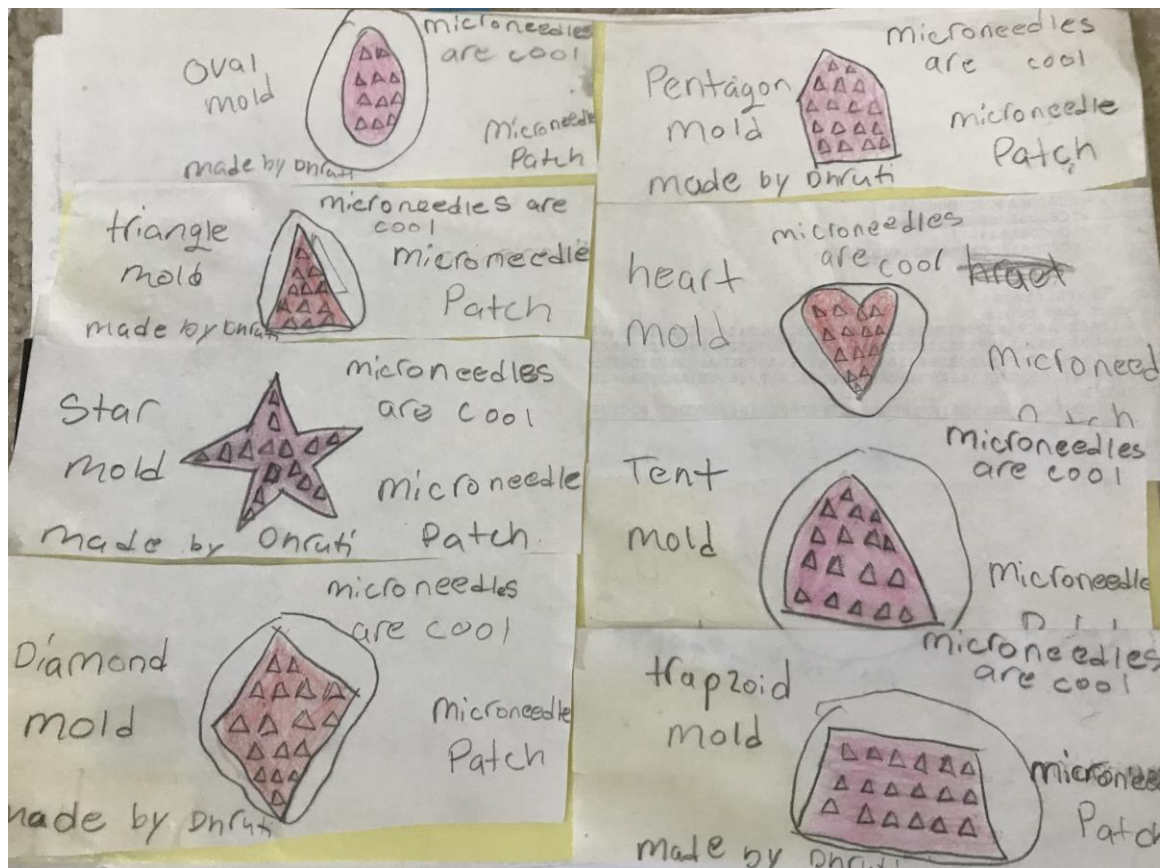 Oval
mold
microneedles
are cool
microneedle
Patch
made by Dhruti
triangle
mold
microneedles are
cool
microneedle
Patch
made by Dhruti
Star
mold
microneedles
are cool
microneedle
Patch
made by Dhruti
Diamond
mold
microneedles
are cool
microneedle
Patch
made by Dhruti
Pentagon
mold
microneedles
are cool
microneedle
Patch
made by Dhruti
heart
mold
microneedles
are cool
microneed
Tent
mold
microneedles
are cool
microneedle
trapzoid
mold
microneedles
are cool
Patch
made by Dhruti